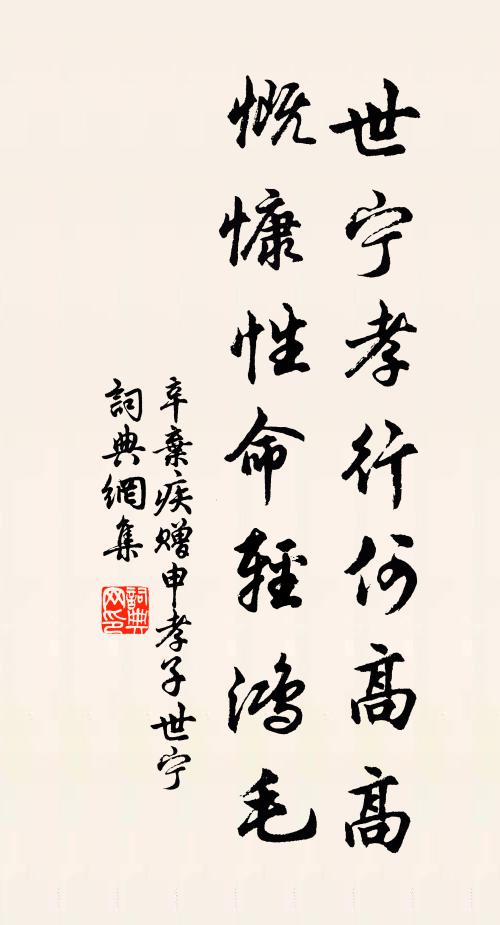 世宁孝行何高高
慨慷性命輕鸿毛
辛棄疾赠申孝子世宁
詞典網集
詞典网印